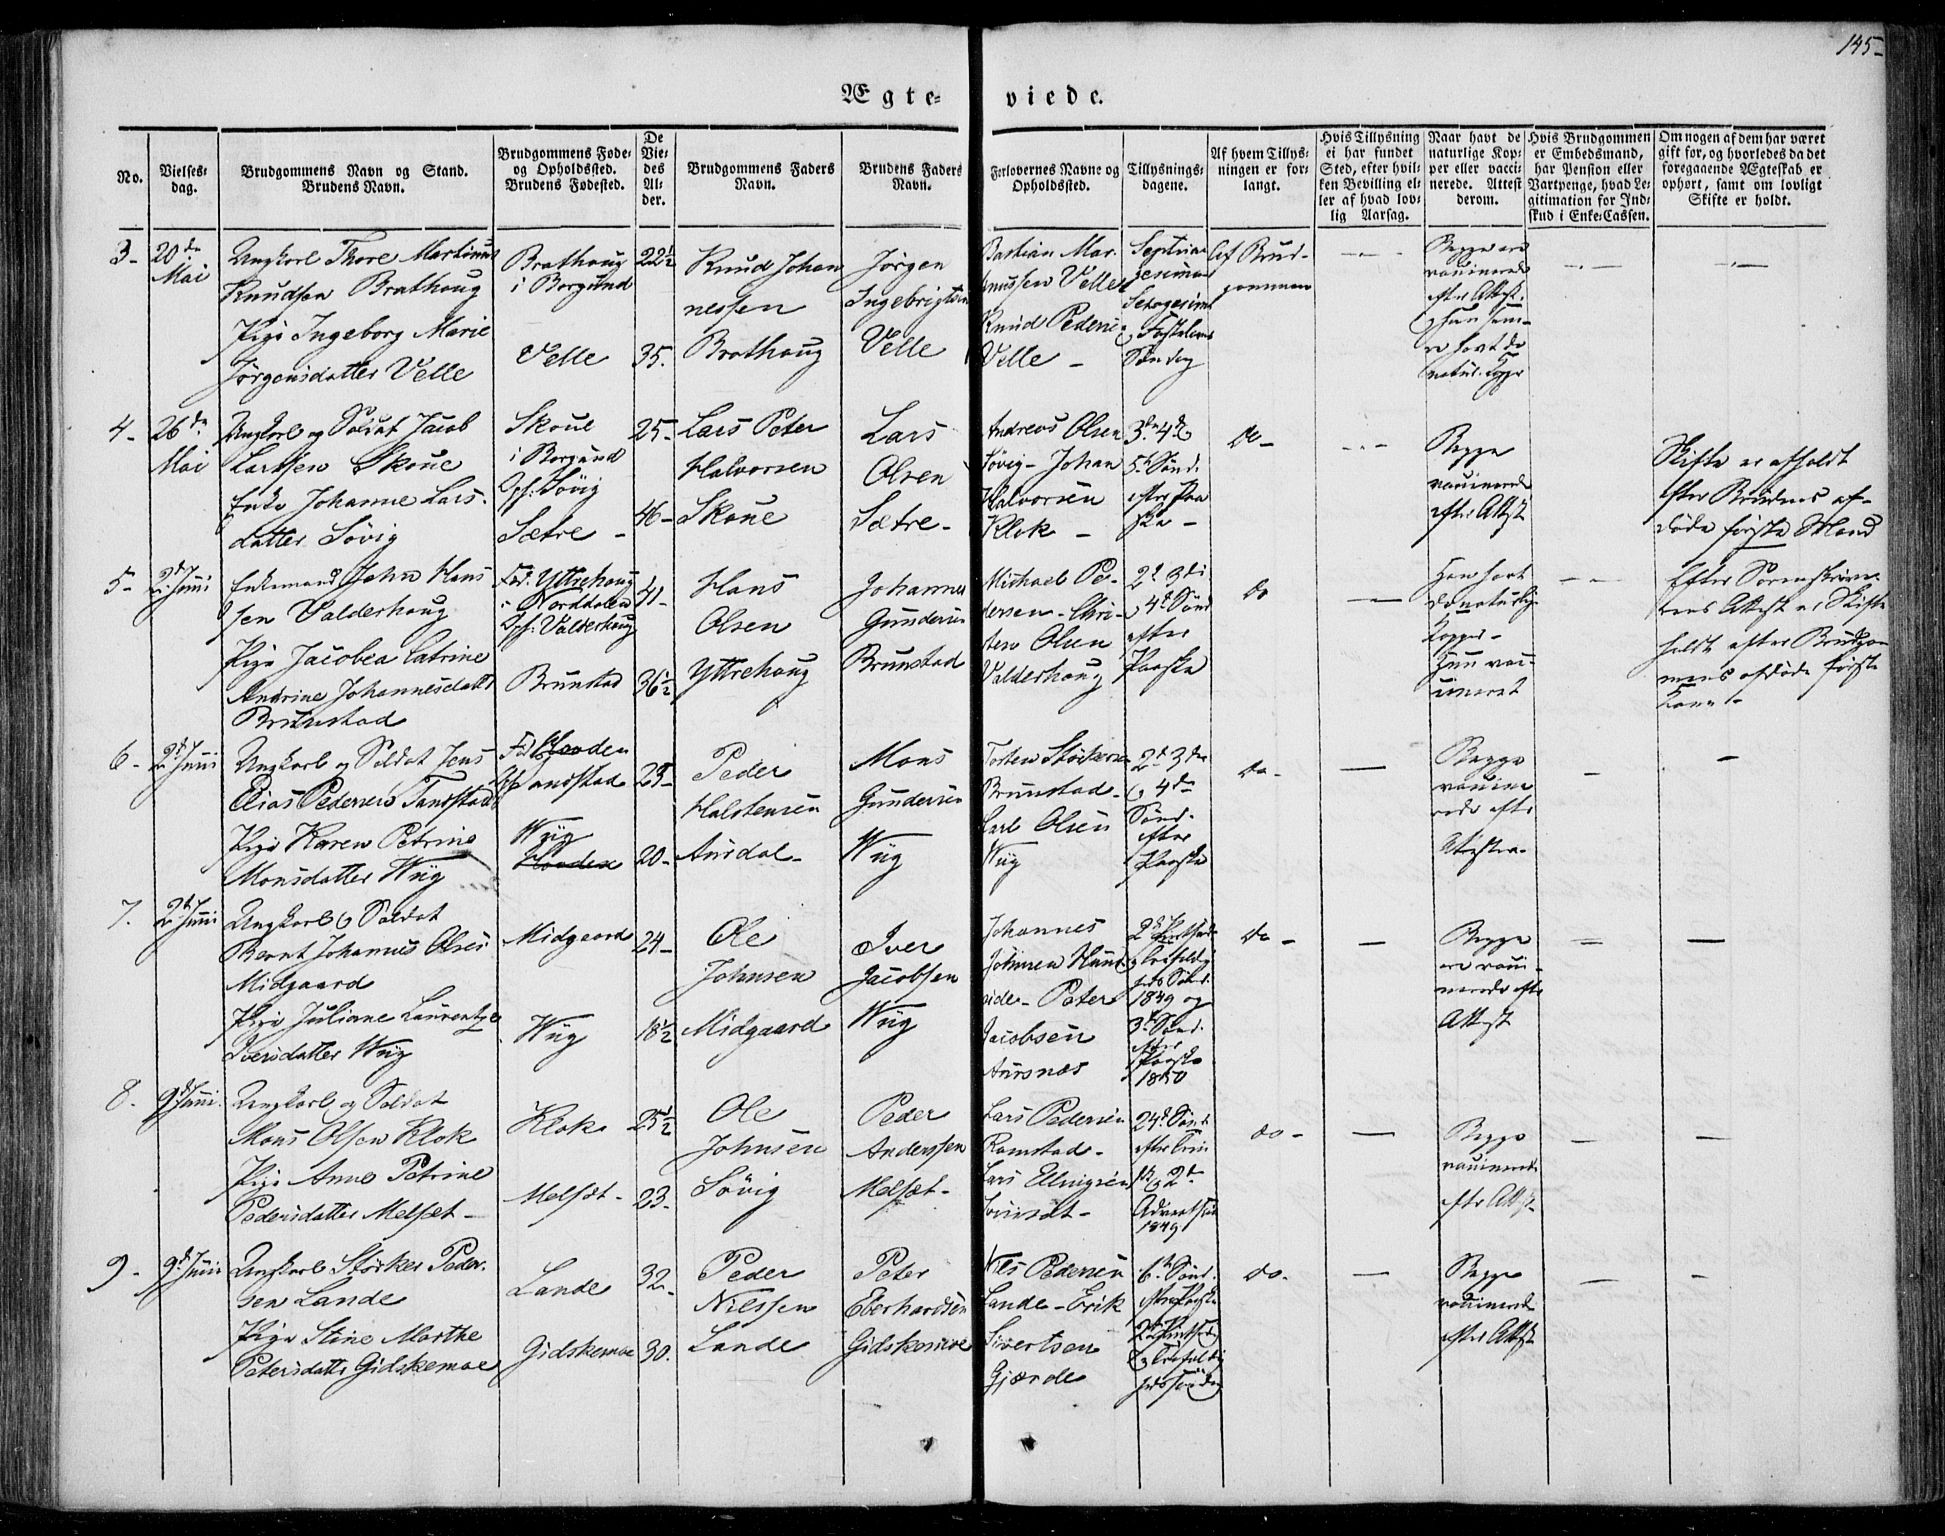 145-
Ægte- viede.
No.
Vielses-
dag.
Brudgommens Navn og Stand.
Brudens Navn.
Brudgommens Føde-
og Opholdssted.
Brudens Fødested.
De
Vie-
des
Al-
der.
Brudgommens Faders
Navn.
Brudens Faders
Navn.
Forlovernes Navne og
Opholdssted.
Tillysnings-
dagene.
Af hvem Tillys-
ningen er for-
langt.
Hvis Tillysning
ei har fundet
Sted, efter hvil-
ken Bevilling el-
ler af hvad lov-
lig Aarsag.
Naar havt de
naturlige Kop-
per eller vacci-
nerede. Attest
derom.
Hvis Brudgommen
er Embedsmand,
har Pension eller
Vartpenge, hvad Le-
gitimation for Ind-
skud i Enke-Cassen.
Om nogen af dem har været
gift før, og hvorledes da det
foregaaende Ægteskab er
ophørt, samt om lovligt
Skifte er holdt.
3-
20de
Mai
Ungkarl Thore Martinus
Knudsen Brathoug
Pige Ingeborg Marie
Jørgensdatter Velle
Brathoug
i Borgund
Velle
22½
35.
Knud Johan
nessen
Brathoug
Jørgen
Ingebrigtsen
Velle
Bastian Mar-
Velle
Knud Peders:
Velle -
Septua
gesima
Sexagesima
& Fastelavns
Søndag
Af Brud-
gommen
Begge ere
vaccinerede
efter Attest.
natur. Kopr
4-
26de
Mai
Ungkarl og Soldat Jacob
Larssen Skoue
Enke Johanne Lars-
datter Søvig
Skoue
i Borgund
Oph: Søvig
Sætre -
25-
46-
Lars Peter
Halvorsen
Skoue
Lars
Olsen
Sætre-
Andreas Olsen
Søvig- Johan
Halvorsen
Klok -
3de 4de &
5te Sønd.
efter Paa
ske -
Do-
Begge
vaccinerede
efter Attest
Skifte er afholdt
efter Brudens af-
døde første Mand
5-
2d Juni
Enkemand John Hans
sen Valderhoug
Pige Jacobea Catrine
Andrine Johannesdatter
Brunstad
Fød: Yttrehoug
i Norddalen
Oph: Valderhoug
Brunstad
41-
36½
Hans
Olsen
Yttrehoug
Johannes
Gundersen
Brunstad
Michael Pe-
dersen- Chri-
sten Olsen
Valderhoug
2d 3di
& 4de Sønd
efter
Paaske
do
Han havt
de naturlige
Kopper-
Hun vac-
cineret
Efter Sorenskrive-
rens Attest er Skifte
holdt efter Brudgom
mens afdøde første
Kone-
6-
2d Juni
Ungkarl og Soldat Jens
Elias Pedersen Tandstad
Pige Karen Petrine
Monsdatter Wiig
Tandstad
Wiig
23-
20-
Peder
Halstensen
Aursdal-
Mons
Gundersen
Wiig
Torsten Størkersen
Brunstad-
Carl Olsen
Wiig
2d 3de
& 4de
Sønd-
efter
Paaske
do-
Begge
vaccine
rede efter
Attester.
7.
2d Juni
Ungkarl & Soldat
Bernt Johannes Olsen
Midgaard
Pige Juliane Laurentze
Iversdatter Wiig
Midgaard
Wiig
24-
18½
Ole
Johnsen
Midgaard
Iver
Jacobsen
Wiig
Johannes
Peter
Jacobsen
Aursnæs
1849 og
3de Sønd.
efter
Paaske
1850
do-
Begge
ere vacci-
nerede efter
Attest
8-
9d Juni.
Ungkarl og Soldat
Mons Olsen Klok
Pige Anne Petrine
Pedersdatter Melsæt-
Klok
Melsæt-
25½
23-
Ole
Johnsen
Søvig
Peder
Anderssen
Melsæt-
Lars Pedersen
Ramstad-
Lars Ellingsen
24de Sønd
efter Trin
& 2de
Advent Sønd
1849
do-
Begge
vaccinerede
efter Attest
9-
9d Juni
Ungkarl Størker Peder-
sen Lande
Pige Stine Marthe
Petersdatter Gidskemoe
Lande
Gidskemoe
32-
30.
Peder
Nilssen
Lande
Peter
Eberhardsen
Gidskemoe
Nils Pedersen
Lande- Erik
Sivertsen
Gjærde
6te Sønd.
efter Paaske
2d Pintsed.
& Trefoldig
heds Søndag
do-
Begge
vaccinerede
efter Attest